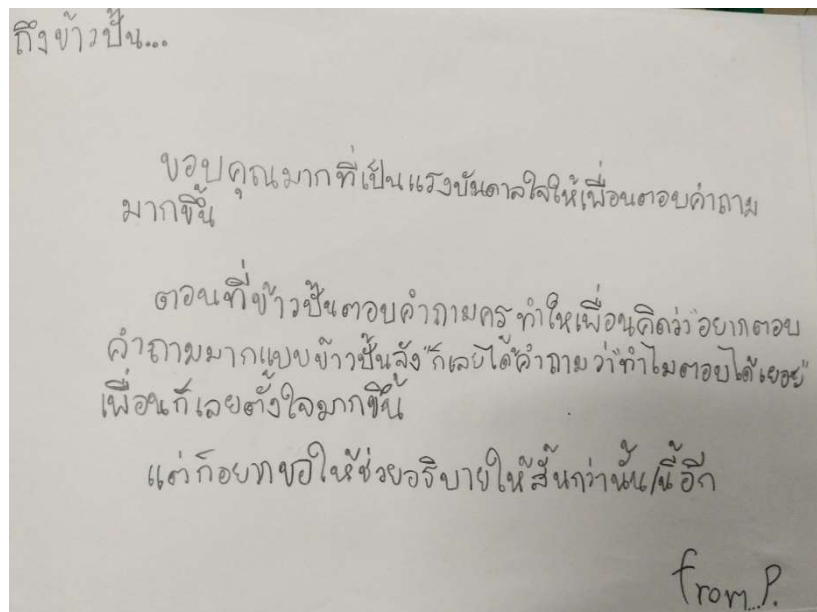 ถึงข้าวปั้น...
ขอบคุณมากที่เป็นแรงบันดาลใจให้เพื่อนตอบคำถาม
มากขึ้น
ตอนที่ข้าวปั้นตอบคำถามครู ทำให้เพื่อนคิดว่า"อยากตอบ
คำถามมากแบบข้าวปั้นจัง"ก็เลยได้คำถามว่า"ทำไมตอบได้เยอะ"
เพื่อนก็เลยตั้งใจมากขึ้น
แต่ก็อยากขอให้ช่วยอธิบายให้สั้นกว่านั้น/นี้อีก
from...P.